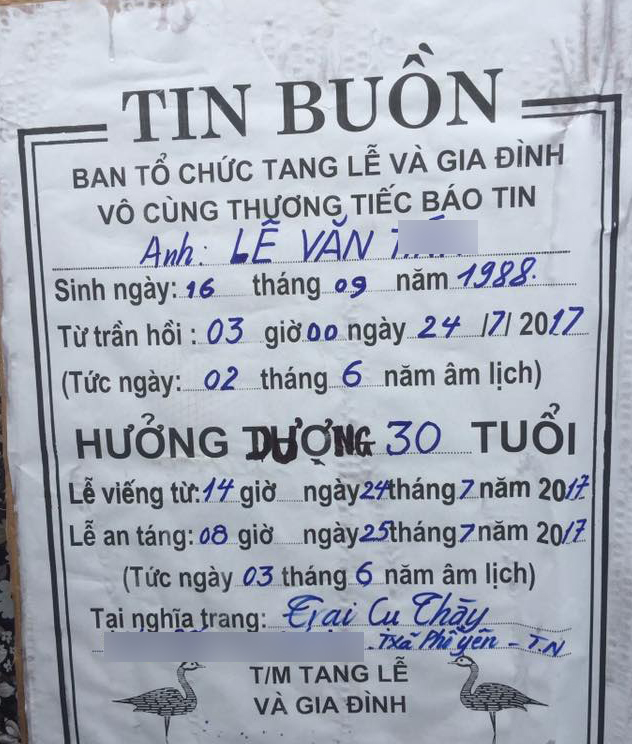 TIN BUỒN
BAN TỔ CHỨC TANG LỄ VÀ GIA ĐÌNH
VÔ CÙNG THƯƠNG TIẾC BÁO TIN
Anh: LÊ VĂN
Sinh ngày: 16 tháng 09 năm 1988.
Từ trần hồi : 03 giờ 00 ngày 24 /7/ 2017
(Tức ngày: 02 tháng 6 năm âm lịch)
HƯỞNG DƯỢNG 30 TUỔI
Lễ viếng từ: 14 giờ ngày 24 tháng 7 năm 2017
Lễ an táng: 08 giờ ngày 25 tháng 7 năm 2017
(Tức ngày 03 tháng 6 năm âm lịch)
Tại nghĩa trang: Trai Cu Thầy
Txã Phổ yên - T.N
T/M TANG LỄ
VÀ GIA ĐÌNH